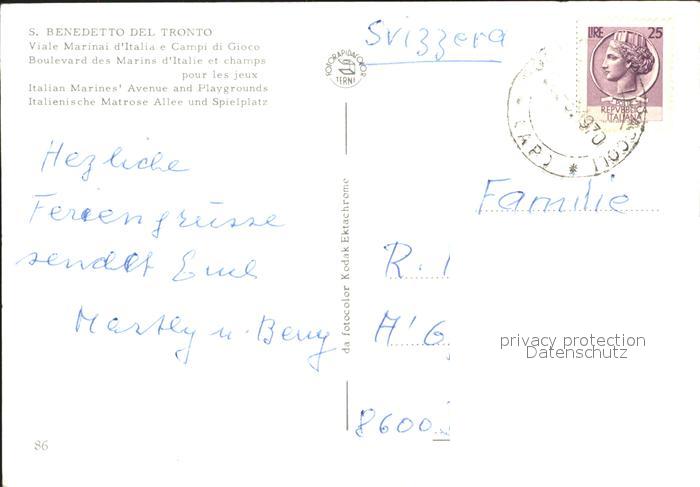 S. BENEDETTO DEL TRONTO
Viale Marinai d'Italia e Campi di Gioco
Boulevard des Marins d'Italie et champs
pour les jeux
Italian Marines' Avenue and Playgrounds
Italienische Matrose Allee und Spielplatz
Hezliche
Feriengrüsse
sendet Euch
u. Beny
86
FOTORAPIDACOLOR
TERNI
da fotocolor Kodak Ektachrome
Svizzera
LIRE 25
REPVBBLICA
ITALIANA
1970
Familie
R.
H' G
8600
privacy protection
Datenschutz